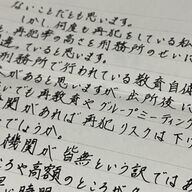 ないことだとも思います。
しかし、何度も再犯をしている私
、再犯率の高さを刑務所のせいに
違っていると思います。
刑務所で行われている教育自体
があると思うが、出所後に
いでも再教育やグループミーティング
関があれば再犯リスクは下
でしょうか。
機関が皆無という訳では
ろや高額のところが